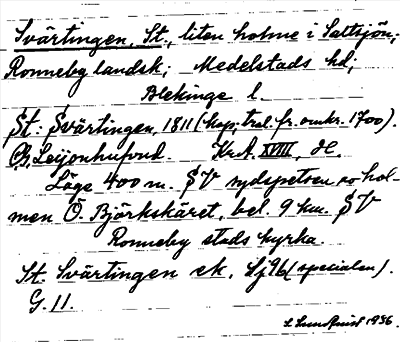 Svärtingen, St., liten holme i Saltsjön,
Ronneby landsk; Medelstads hd;
Blekinge l.
St: Svärtingen, 1811 (kop, trol. fr. omkr. 1700).
C.G. Leijonhufvud. Kr.A. XVIII, Öl.
Läge 400 m. SV sydspetsen av hol-
men Ö. Björkskäret, bel. 9 km. SV
Ronneby stads kyrka.
St. Svärtingen ek. Sj96 (specialen).
G. 11.
L Lundquist 1936.